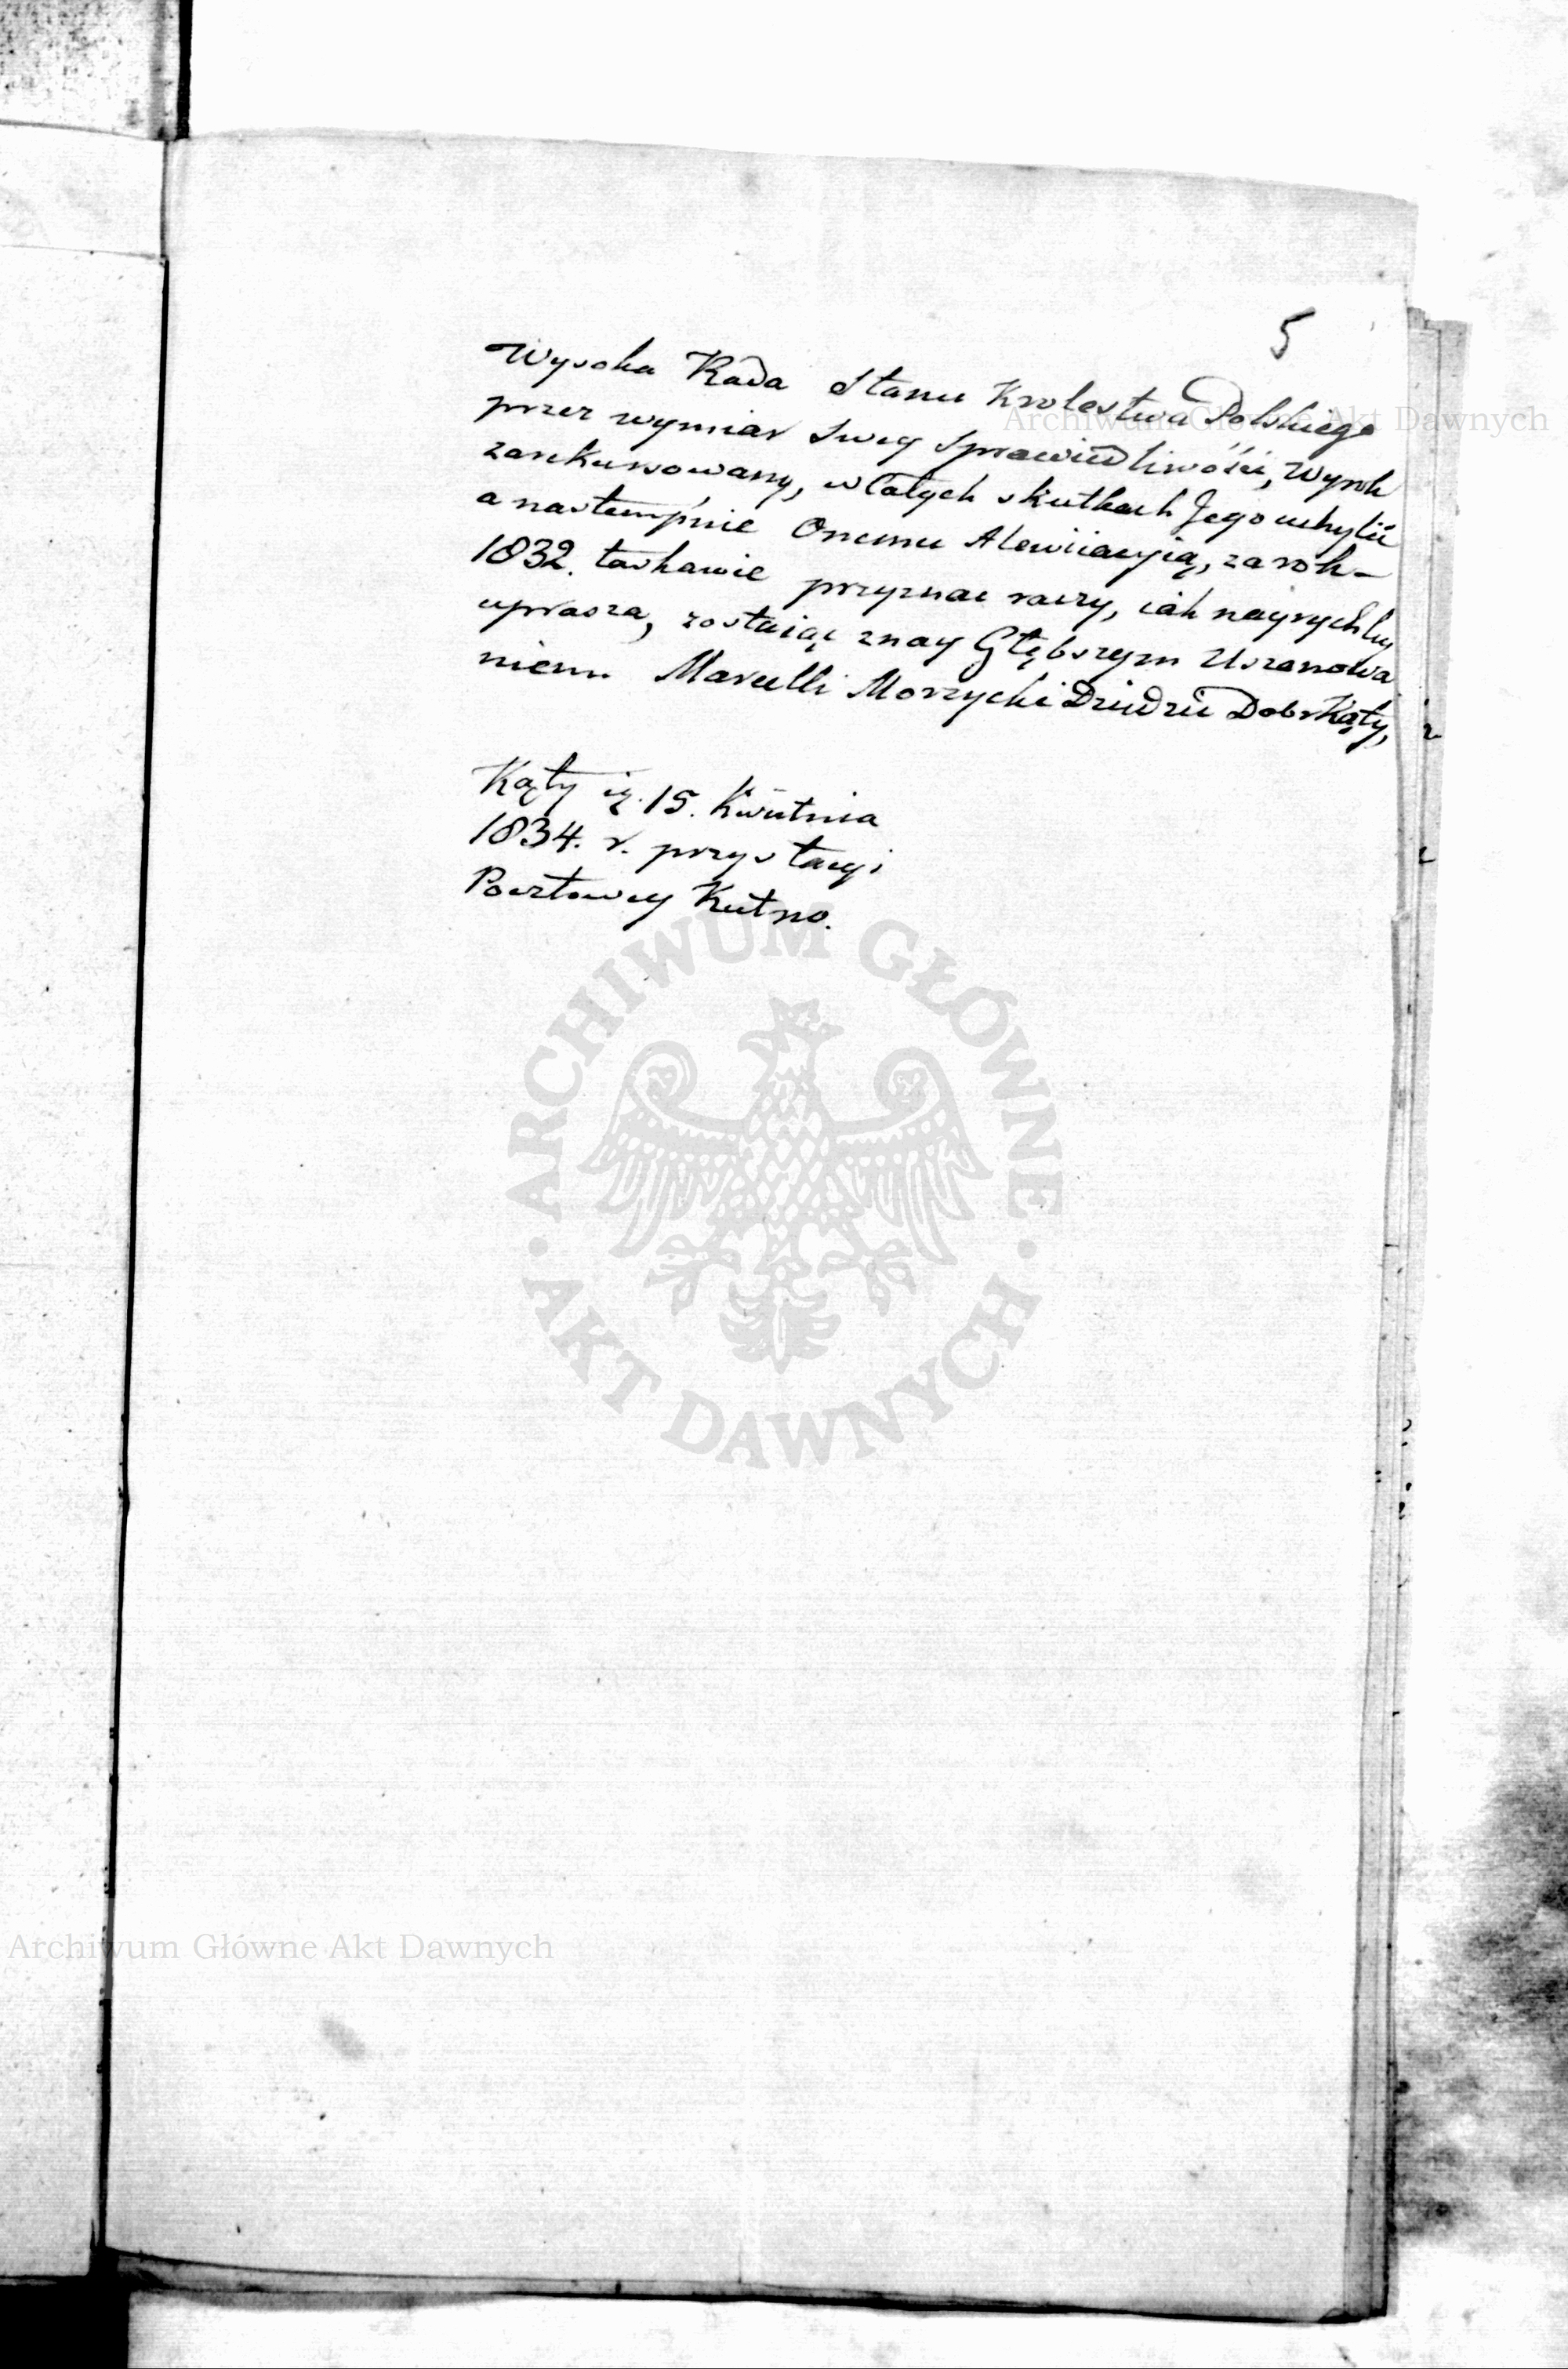 5
Wysoka Rada Stanu Krolestwa Polskiego
przez wymiar swey sprawiedliwości, wyrok
zarekursowany, w całych skutkach Jego uchylić
a nastempnie Onemu Alewiiacyią, za rok-
1832. łaskawie przyznac raczy, iak nayrychley
uprasza, zostaiąc z nay Głębszym Uszanowa
niem. Marcelli Morzycki Dziedzic Dobr Kąty,
Kąty 15. Kwietnia
1834. r. przy stacyi
Pocztowey Kutno.
Archiwum Główne Akt Dawnych
ARCHIWUM GŁÓWNE
AKT DAWNYCH
Archiwum Główne Akt Dawnych